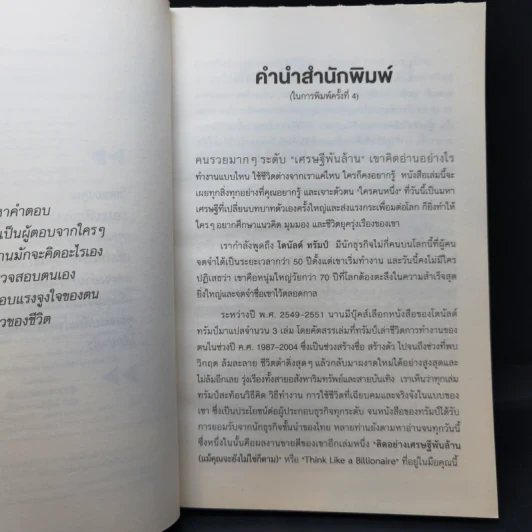 าคำตอบ
เป็นผู้ตอบจากใครๆ
านมักจะคิดอะไรเอง
วจสอบตนเอง
อบแรงจูงใจของตน
วของชีวิต
คำนำสำนักพิมพ์
(ในการพิมพ์ครั้งที่ 4)
คนรวยมากๆ ระดับ "เศรษฐีพันล้าน" เขาคิดอ่านอย่างไร
ทำงานแบบไหน ใช้ชีวิตต่างจากเราแค่ไหน ใครก็คงอยากรู้ หนังสือเล่มนี้จะ
เผยทุกสิ่งทุกอย่างที่คุณอยากรู้ และเจาะตัวตน "ใครคนหนึ่ง" ที่วันนี้เป็นมหา
เศรษฐีที่เปลี่ยนบทบาทตัวเองครั้งใหญ่และส่งแรงกระเพื่อมต่อโลก ก็ยิ่งทำให้
ใครๆ อยากศึกษาแนวคิด มุมมอง และชีวิตยุครุ่งเรืองของเขา
เรากำลังพูดถึง โดนัลด์ ทรัมป์ มีนักธุรกิจไม่กี่คนบนโลกนี้ที่ผู้คน
จดจำได้เป็นระยะเวลากว่า 50 ปีตั้งแต่เขาเริ่มทำงาน และวันนี้คงไม่มีใคร
ปฏิเสธว่า เขาคือหนุ่มใหญ่วัยกว่า 70 ปีที่โลกต้องตะลึงในความสำเร็จสุด
ยิ่งใหญ่และจดจำชื่อเขาไว้ตลอดกาล
ระหว่างปี พ.ศ. 2549-2551 นานมีบุ๊คส์เลือกหนังสือของโดนัลด์
ทรัมป์มาแปลจำนวน 3 เล่ม โดยคัดสรรเล่มที่ทรัมป์เล่าชีวิตการทำงานของ
ตนในช่วงปี ค.ศ. 1987-2004 ซึ่งเป็นช่วงสร้างชื่อ สร้างตัว ไปจนถึงช่วงที่พบ
วิกฤต ล้มละลาย ชีวิตดำดิ่งสุดๆ แล้วกลับมาผงาดใหม่ได้อย่างสูงสุดและ
ไม่ล้มอีกเลย รุ่งเรืองทั้งสายอสังหาริมทรัพย์และสายบันเทิง เราเห็นว่าทุกเล่ม
ทรัมป์สะท้อนวิธีคิด วิธีทำงาน การใช้ชีวิตที่เฉียบคมและจริงจังในแบบของ
เขา ซึ่งเป็นประโยชน์ต่อผู้ประกอบธุรกิจทุกระดับ จนหนังสือของทรัมป์ได้รับ
การยอมรับจากนักธุรกิจชั้นนำของไทย หลายท่านยังตามหาอ่านจนทุกวันนี้
ซึ่งหนึ่งในนั้นคือผลงานขายดีของเขาอีกเล่มหนึ่ง "คิดอย่างเศรษฐีพันล้าน
(แม้คุณจะยังไม่ใช่ก็ตาม)" หรือ "Think Like a Billionaire" ที่อยู่ในมือคุณนี้